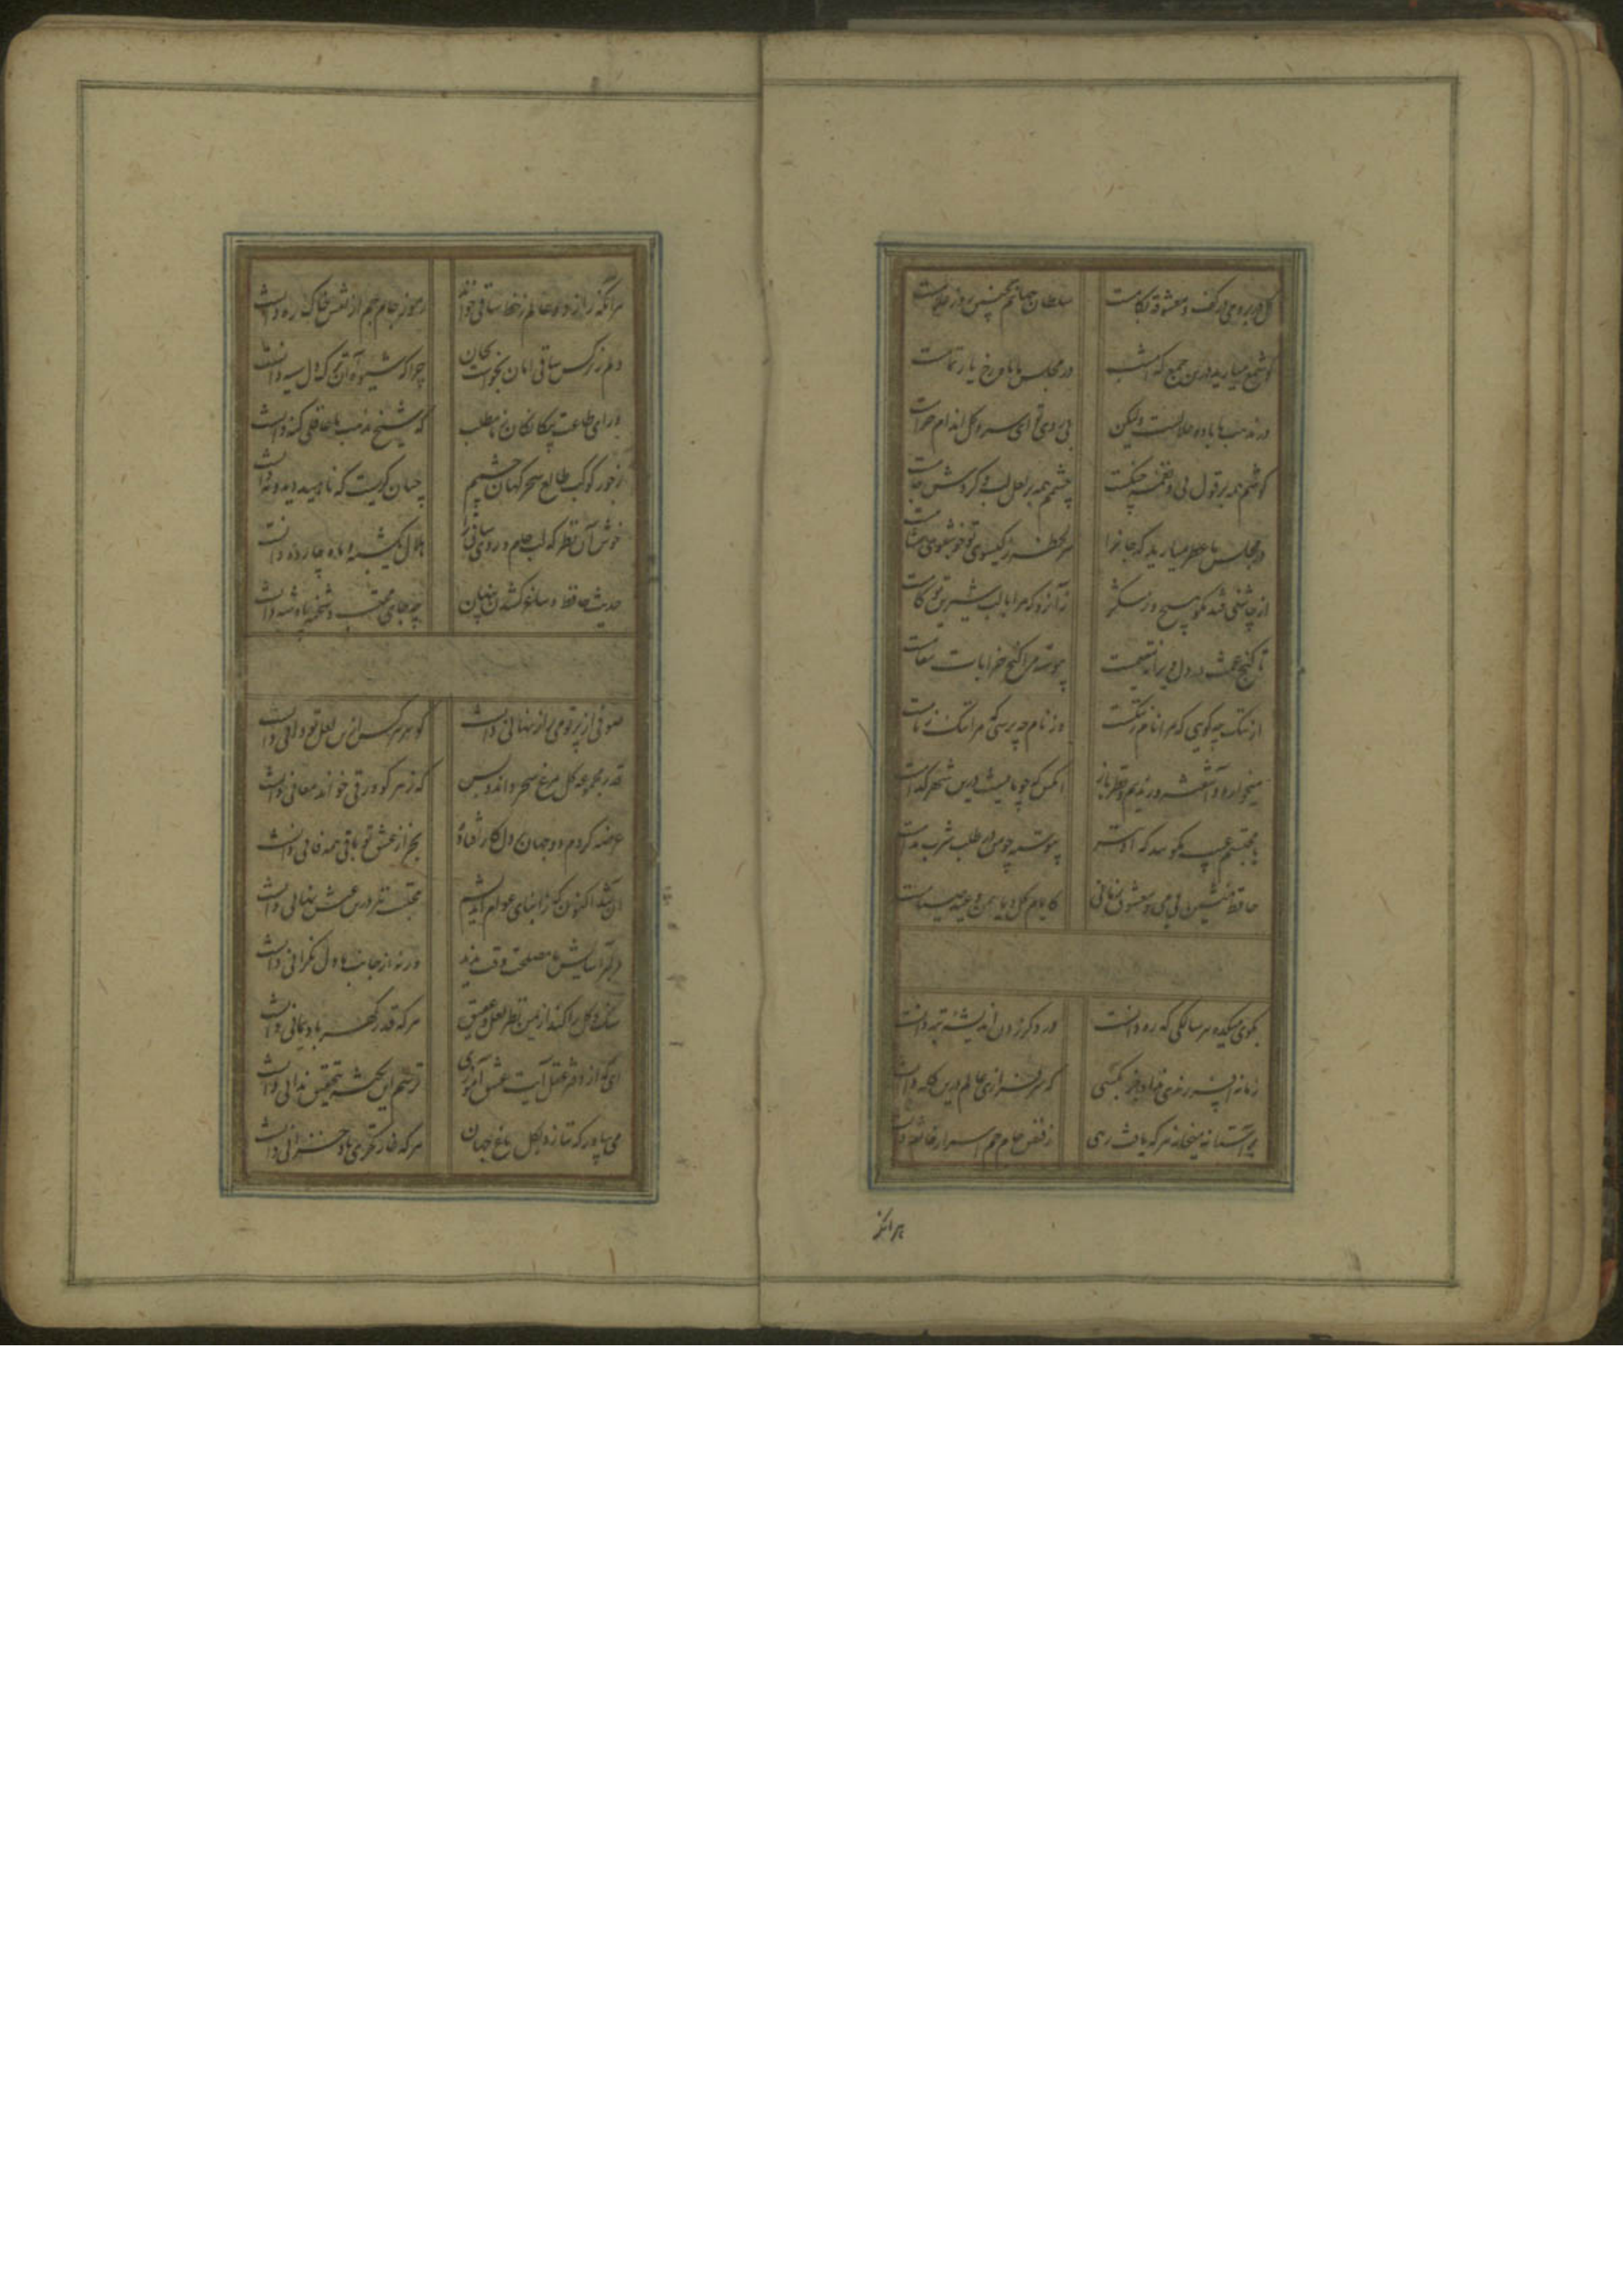 گل در بر و می در کف و معشوقه بکامست سلطان جهانم بچنین روز غلامست
گو شمع میارید درین جمع که امشب در مجلس ما ماه رخ یار تمامست
در مذهب ما باده حلالست ولیکن بی روی تو ای سرو گل اندام حرامست
گوشم همه بر قول نی و نغمه چنگست چشمم همه بر لعل لب و گردش جامست
در مجلس ما عطر میارید که جانرا هر لحظه ز گیسوی تو خوشبوی مشامست
از چاشنی قند مگو هیچ و ز شکر زآنرو که مرا با لب شیرین تو کامست
تا گنج غمت در دل ویرانه مقیمست پیوسته مرا کنج خرابات مقامست
از ننگ چه گویی که مرا نام ز ننگست وز نام چه پرسی که مرا ننگ ز نامست
میخواره و سرگشته و رندیم و نظر باز آنکس که چو ما نیست درین شهر کدامست
با محتسبم عیب مگویید که او نیز پیوسته چو ما در طلب شرب مدامست
حافظ منشین بی می و معشوق زمانی کایام گل و یاسمن و عید صیامست
بکوی میکده هر سالکی که ره دانست در دگر زدن اندیشه تبه دانست
زمانه افسر رندی نداد جز بکسی که سرفرازی عالم درین کله دانست
بر آستانه میخانه هر که یافت رهی ز فیض جام جم اسرار خانقه دانست
هر آنکه
هر آنکه راز دو عالم ز خط ساقی خواند رموز جام جم از نقش خاک ره دانست
دلم ز نرگس ساقی امان نخواست بجان چرا که شیوه آن ترک دل سیه دانست
ورای طاعت بیگانگان ز ما مطلب که شیخ مذهب ما عاقلی گنه دانست
ز جور کوکب طالع سحرگهان چشمم چنان گریست که ناهید دید و مه دانست
خوش آن نظر که لب جام و روی ساقی را هلال یکشبه و ماه چارده دانست
حدیث حافظ و ساغر کشیدن پنهان چه جای محتسب و شحنه پادشه دانست
صوفی از پرتو می راز نهانی دانست گوهر هر کس ازین لعل توانی دانست
قدر مجموعه گل مرغ سحر داند و بس که نه هر کو ورقی خواند معانی دانست
عرضه کردم دو جهان بر دل کار افتاده بجز از عشق تو باقی همه فانی دانست
آن شد اکنون که ز ابنای عوام اندیشم محتسب نیز درین عیش نهانی دانست
دلبر آسایش ما مصلحت وقت ندید ور نه از جانب ما دل نگرانی دانست
سنگ و گل را کند از یمن نظر لعل و عقیق هر که قدر نفس باد یمانی دانست
ای که از دفتر عقل آیت عشق آموزی ترسم این نکته بتحقیق ندانی دانست
می بیاور که ننازد بگل باغ جهان هر که غارتگری باد خزانی دانست